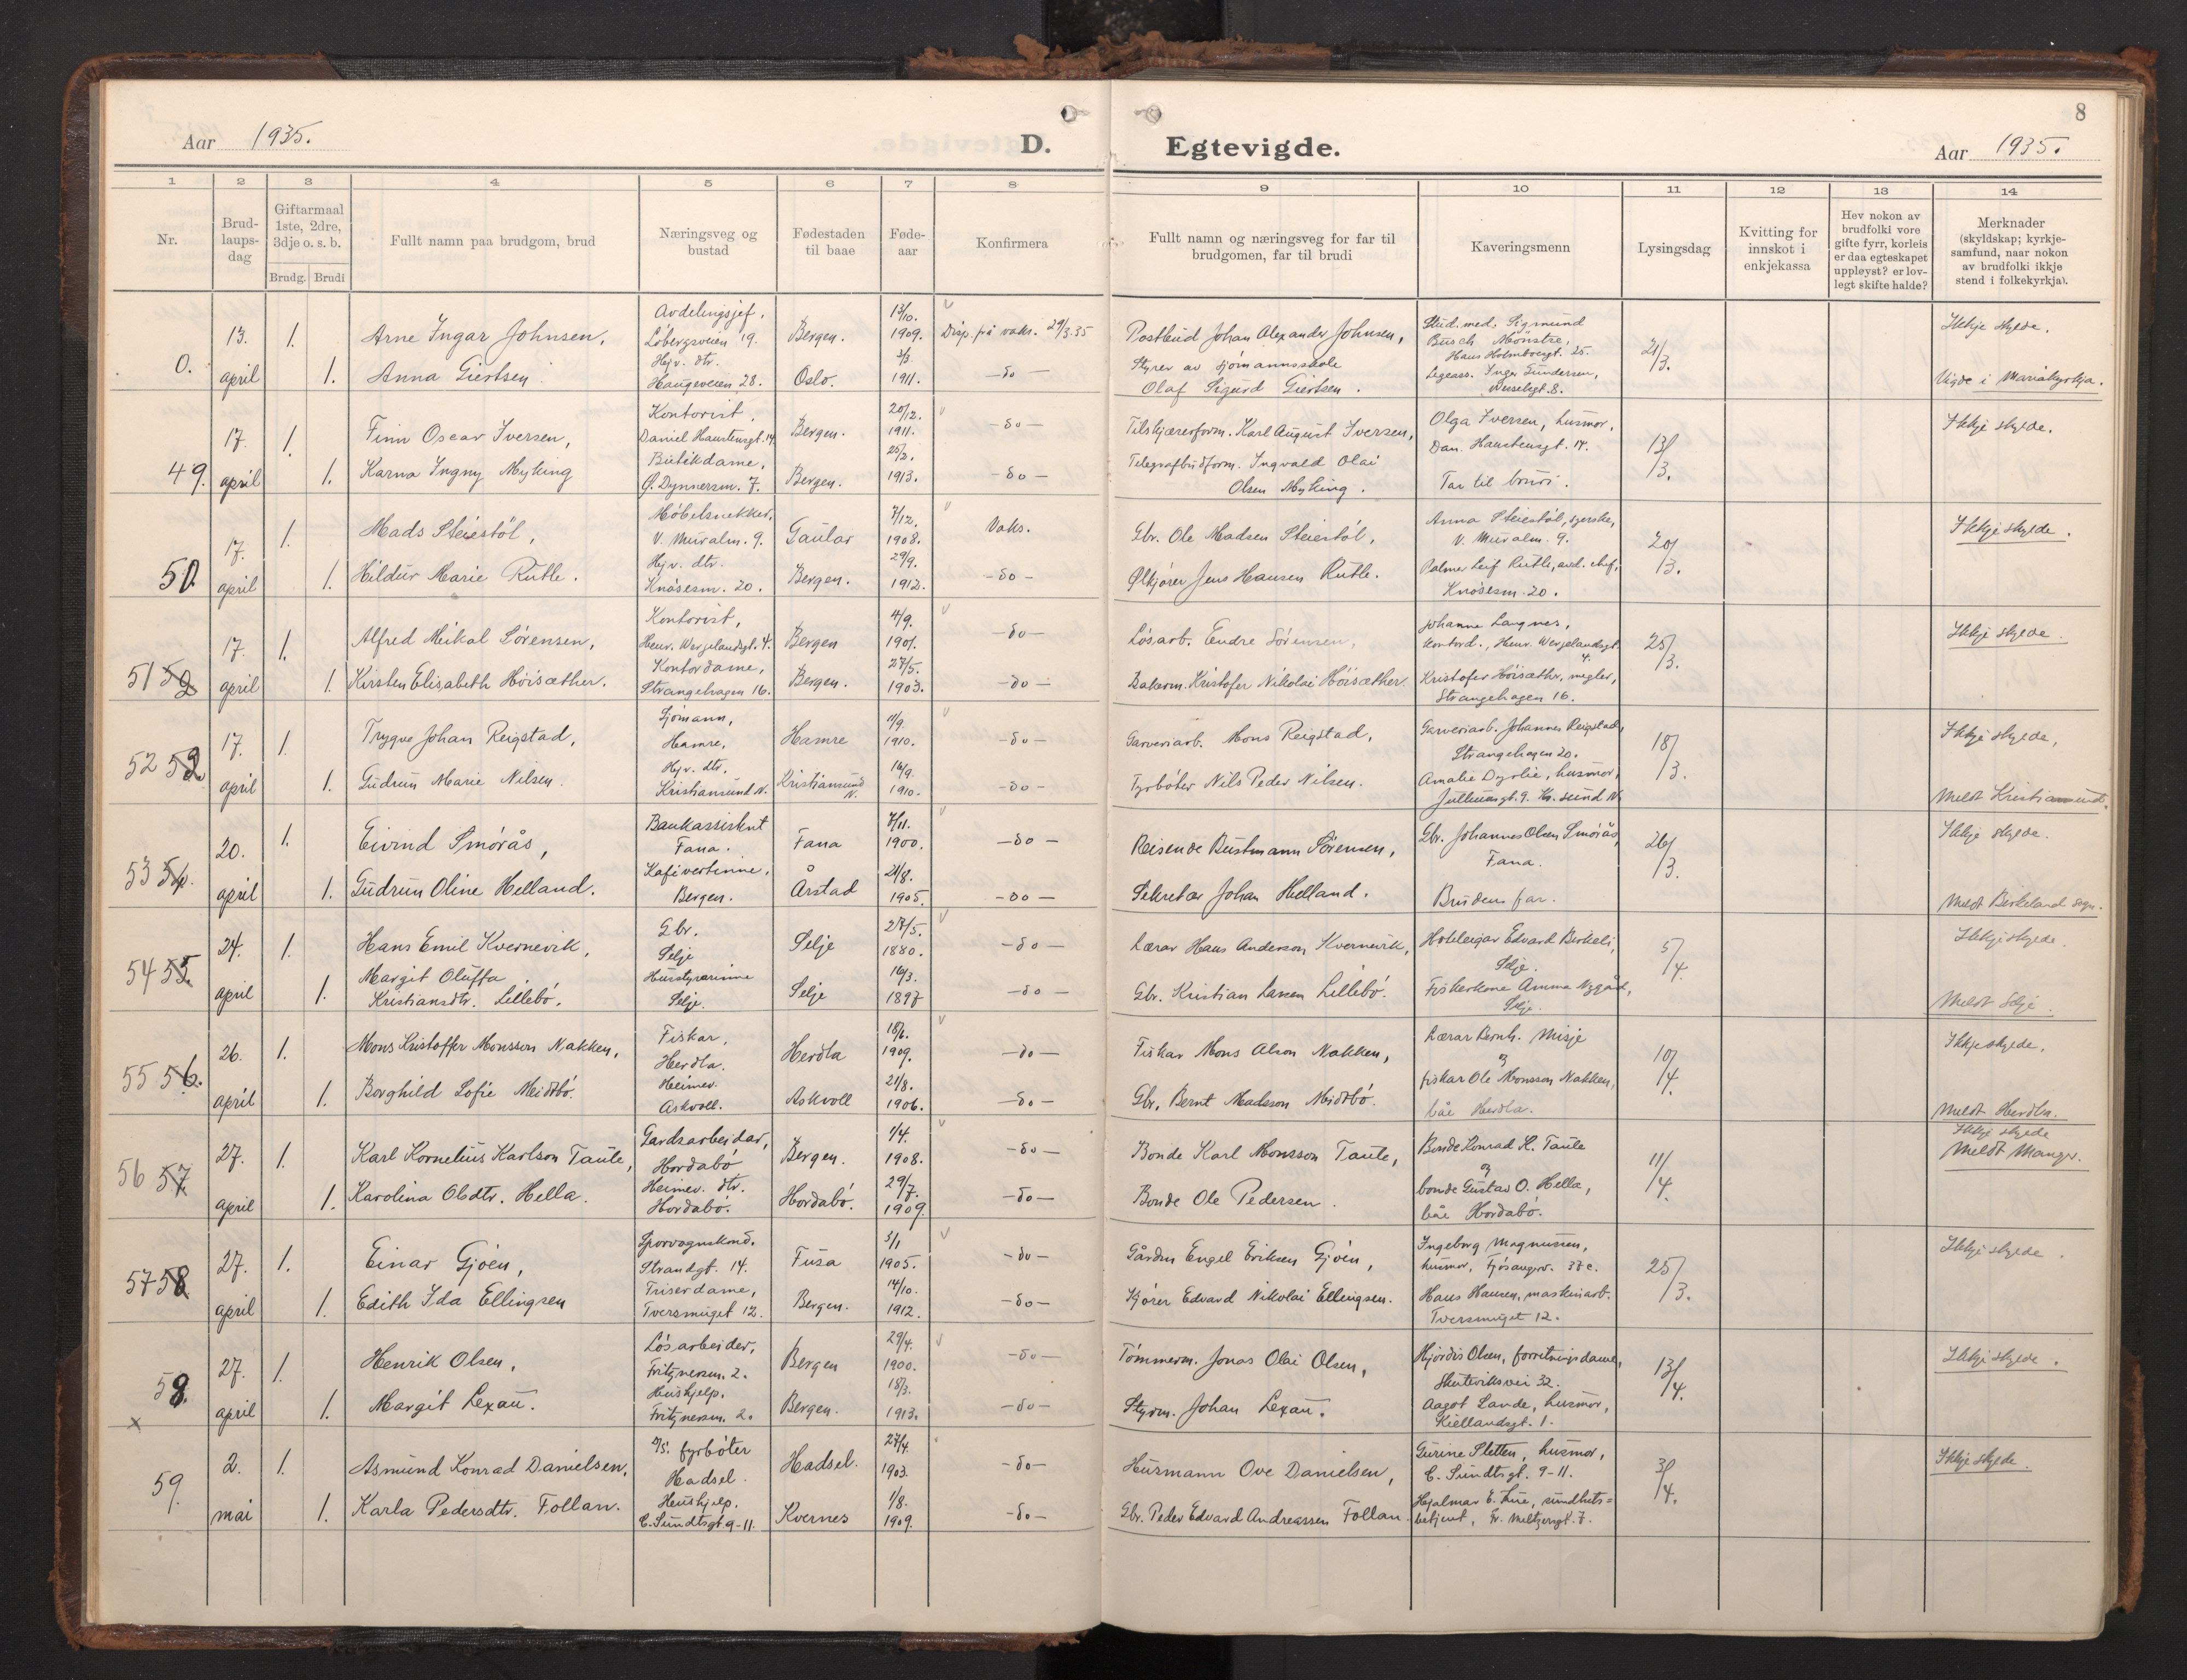 8
Aar 1935.
D.
Egtevigde.
Aar 1935.
1 2 3 4 5 6 7 8 9 10 11 12 13 14
Nr.
Brud-
laups-
dag
Giftarmaal
1ste, 2dre,
3dje o. s. b.
Brudg. Brudi
Fullt namn paa brudgom, brud
Næringsveg og
bustad
Fødestaden
til baae
Føde-
aar
Konfirmera
Fullt namn og næringsveg for far til
brudgomen, far til brudi
Kaveringsmenn
Lysingsdag
Kvitting for
innskot i
enkjekassa
Hev nokon av
brudfolki vore
gifte fyrr, korleis
er daa egteskapet
uppløyst? er lov-
legt skifte halde?
Merknader
(skyldskap; kyrkje-
samfund, naar nokon
av brudfolki ikkje
stend i folkekyrkja).
0.
13.
april
1.
1.
Arne Ingar Johnsen,
Anna Giertsen
Avdelingsjef,
Løbergsveien 19.
Hjv. dtr.
Haugeveien 28.
Bergen.
Oslo.
13/10.
1909.
3/3.
1911.
Disp. på vaks. 29/3.35
-do-
Postbud Johan Alexander Johnsen,
Styrer av sjømannsskole
Olaf Sigurd Giertsen.
Stud. med. Sigmund
Busch Mønstre,
Hans Holmboegt. 25.
Legeass. Inger Gundersen,
21/3.
Ikkje skylde.
Vigde i Mariakyrkja.
49.
17.
april
1.
1.
Finn Oscar Iversen,
Karna Ingny Myking
Kontorist,
Daniel Hanstensgt. 14
Butikdame,
Ø. Dynnersm. 7.
Bergen.
Bergen.
20/12.
1911.
25/2.
1913.
-do-
-do-
Tilskjærerform. Karl August Iversen,
Telegrafbudform. Ingvald Olai
Olsen Myking.
Olga Iversen, husmor,
Dan. Hanstensgt. 14.
Far til brudi.
13/3.
Ikkje skylde.
50.
17.
april
1.
1.
Mads Steiestøl,
Hildur Marie Rutle.
Møbelsnekker,
V. Muralm. 9.
Hjv. dtr.
Knøsesm. 20.
Gaular
Bergen.
7/12.
1908.
29/9.
1912.
Vaks.
-do-
Gbr. Ole Madsen Steiestøl,
Ølkjører Jens Hansen Rutle.
Anna Steiestøl, syerske,
V. Muralm. 9.
Palmer Leif Rutle, avd. chef,
Knøsesm. 20.
20/3.
Ikkje skylde.
51 52
17.
april
1.
1.
Alfred Mikal Sørensen,
Kirsten Elisabeth Høisæther.
Kontorist,
Henr. Wergelandsgt. 4.
Kontordame,
Strangehagen 16.
Bergen
Bergen.
4/9.
1901.
27/5.
1903.
-do-
-do-
Løsarb. Endre Sørensen,
Bakerm. Kristofer Nikolai Høisæther.
Johanne Langnes,
kontord., Henr. Wergelandsgt.
4.
Kristofer Høisæthr, megler,
Strangehagen 16.
25/3.
Ikkje skylde.
52 53
17.
april
1.
1.
Trygve Johan Reigstad,
Gudrun Marie Nilsen.
Sjømann,
Hamre,
Hjv. dtr,
Kristiansund N.
Hamre
Kristiansund
N.
11/9.
1910.
16/9.
1910.
-do-
-do-
Garveriarb. Mons Reigstad,
Fyrbøter Nils Peder Nilsen.
Garveriarb. Johannes Reigstad,
Strangehagen 20.
Amalie Dyrlie, husmor,
18/3.
Ikkje skylde,
Meldt Kristiansund.
53 54.
20.
april
1.
1.
Eivind Smørås,
Gudrun Oline Helland.
Bankassistent
Fana.
Kafévertinne,
Bergen.
Fana
Årstad
7/11.
1900.
21/8.
1905.
-do-
-do-
Reisende Bustmann Sørensen,
Sekretær Johan Helland.
Gbr. Johannes Olsen Smørås,
Fana.
Brudens far.
26/3.
Ikkje skylde.
Meldt Birkeland sogn.
54 55.
24.
april
1.
1.
Hans Emil Kvernevik,
Margit Oluffa
Kristiansdtr. Lillebø.
Gbr.
Selje
Husstyrarinne
Selje.
Selje
Selje
27/5.
1880.
16/3.
1897
-do-
-do-
Lærar Hans Anderson Kvernevik,
Gbr. Kristian Larsen Lillebø.
Hoteleigar Edvard Berkeli,
Selje.
Fiskerkone Amma Nygård,
Selje.
5/4.
Ikkje skylde.
Meldt Selje.
55 56.
26.
april
1.
1.
Mons Kristoffer Monsson Nakken,
Borghild Sofie Meidtbø.
Fiskar,
Herdla.
Heimev.
Askvoll.
Herdla
Askvoll
18/6.
1909.
21/8.
1906.
-do-
-do-
Fiskar Mons Alson Nakken,
Gbr. Bernt Madsson Midtbø.
Lærar Bernh. Misje
og
fiskar Ole Monsson Nakken,
båe Herdla.
10/4.
Ikkje skylde.
Meldt Herdla.
56 57
27.
april
1.
1.
Karl Kornelius Karlson Taule,
Karolina Olsdtr. Hella.
Gardsarbeidar,
Hordabø
Heimev. dtr.
Hordabø.
Bergen.
Hordabø.
1/4.
1908.
29/7.
1909.
-do-
-do-
Bonde Karl Monsson Taule,
Bonde Ole Pedersen.
Bonde Konrad K. Taule
og
bonde Gustav O. Hella,
båe Hordabø.
11/4.
Ikkje skylde
Meldt Manger.
57 58
27.
april
1.
1.
Einar Gjøen,
Edith Ida Ellingsen
Sporvognskond.
Strandgt. 14.
Friserdame,
Tversmuget 12.
Fusa
Bergen.
3/1
1905.
14/10.
1912.
-do-
-do-
Gårdbr. Engel Eriksen Gjøen,
Kjører Edvard Nikolai Ellingsen.
Ingeborg Magnussen,
husmor, Fjøsangerv. 37 c.
Hans Hansen, maskinarb.
Tversmuget 12.
25/3.
Ikkje skylde.
58.
x
27.
april
1.
1.
Henrik Olsen,
Margit Lexau.
Løsarbeider,
Fritznersm. 2.
Hushjelp.
Fritznersm. 2.
Bergen
Bergen.
29/4.
1900.
18/3.
1913.
-do-
-do-
Tømmerm. Jonas Olai Olsen,
Styrm. Johan Lexau.
Hjørdis Olsen, forretningsdame,
Skuteviksvei 32.
Aagot Lande, husmor,
Kiellandsgt. 1.
13/4.
Ikkje skylde.
59.
2.
mai
1.
1.
Asmund Konrad Danielsen,
Karla Pedersdtr. Follan.
fyrbøter
Hadsel.
Hushjelp.
C. Sundtsgt 9-11.
Hadsel.
Kvernes
27/4.
1903.
1/8.
1909.
-do-
-do-
Husmann Ove Danielsen,
Gbr. Peder Edvard Andreassen Follan.
Gurine Sletten, husmor,
C. Sundtsgt. 9-11.
Hjalmar E. Lie, sundhets=
betjent, Gr. Meltzersgt. 7.
3/4.
Ikkje skylde.